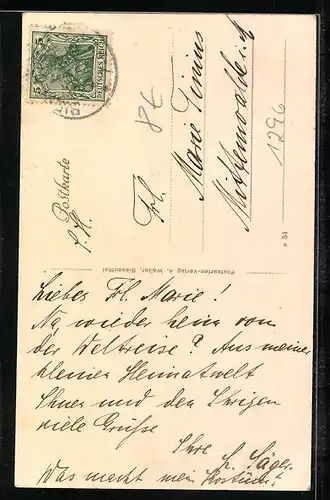 5 5
DEUTSCHES REICH
Postkarte
Frl.
Marie
Mittenwalde i. M
8€
1296
e 51
Postkarten-Verlag A. Walter, Biesenthal
Liebes Frl. Marie!
Na, wieder heim von
der Weltreise? Aus meiner
kleinen Heimatwelt
Ihnen und den Ihrigen
viele Grüße
Ihre
Jäger.
Was macht mein Kostüm?